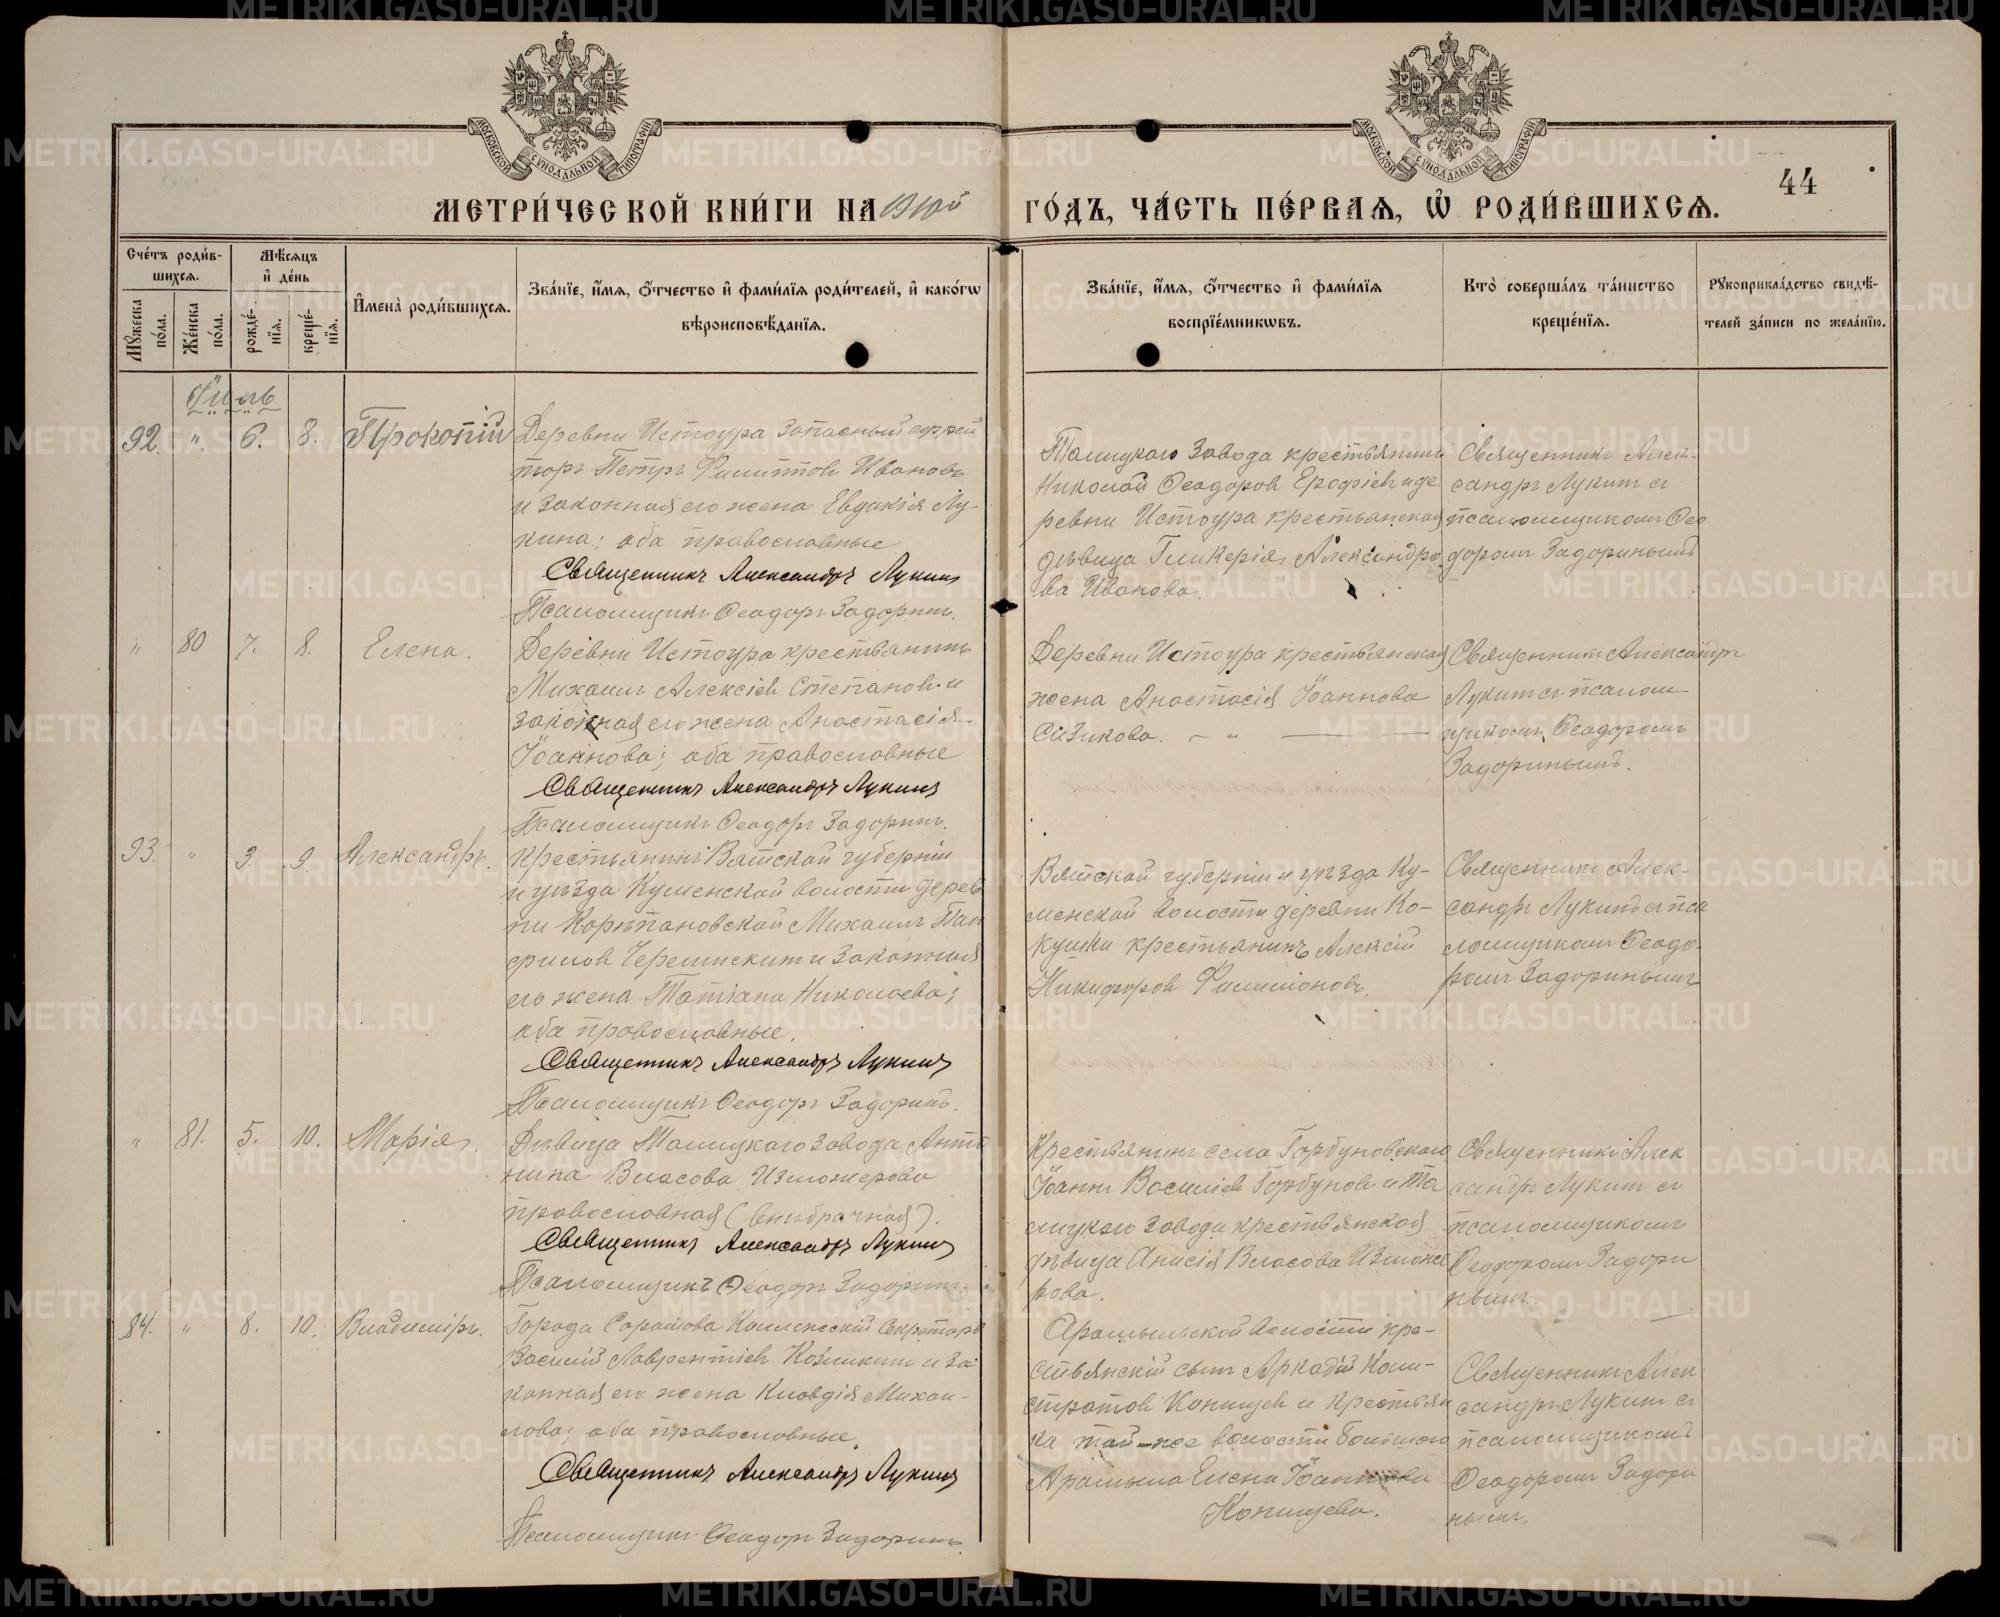 МОСКОВСКОЙ СѴНОДАЛЬНОЙ ТИПОГРАФІИ
МОСКОВСКОЙ СѴНОДАЛЬНОЙ ТИПОГРАФІИ
44
МЕТРИ́ЧЕСКОЙ КНИ́ГИ НА 1910й ГО́ДЪ, ЧА́СТЬ ПЕ́РВАѦ, Ѡ҆ РОДИ́ВШИХСѦ.
Сче́тъ роди́в-
шихсѧ.
Мꙋ́жеска по́ла.
Же́нска по́ла.
Мѣ́сѧцъ
и҆ де́нь
рожде́-
нїѧ.
креще́-
нїѧ.
И҆мена̀ роди́вшихсѧ.
Зва́нїе, и҆́мѧ, ѻ҆́тчество и҆ фами́лїѧ роди́телей, и҆ како́гѡ
вѣроисповѣ́данїѧ.
Зва́нїе, и҆́мѧ, ѻ҆́тчество и҆ фами́лїѧ
воспрїе́мникѡвъ.
Кто̀ соверша́лъ та́инство
креще́нїѧ.
Рꙋкоприкла́дство свидѣ́-
телей за́писи по жела́нїю.
Іюль
92. " 6. 8. Прокопій
Деревни Истоура запасный ефрей
торъ Петръ Филипповъ Ивановъ
и законная его жена Евдокія Лу-
кина; оба православные
Священникъ Александръ Лукинъ
Псаломщикъ Ѳеодоръ Задоринъ.
Талицкаго Завода крестьянинъ
Николай Ѳеодоровъ Ерофѣевъ и де
ревни Истоура крестьянская
дѣвица Гликерія Александро
ва Иванова.
Священникъ Алек-
сандръ Лукинъ съ
псаломщикомъ Ѳео
доромъ Задоринымъ
" 80 7. 8. Елена.
Деревни Истоура крестьянинъ
Михаилъ Алексіевъ Степановъ и
законная его жена Анастасія
Іоаннова; оба православные
Священникъ Александръ Лукинъ
Псаломщикъ Ѳеодоръ Задоринъ.
Деревни Истоура крестьянская
жена Анастасія Іоаннова
Сизикова.
Священникъ Александръ
Лукинъ съ псалом
щикомъ Ѳеодоромъ
Задоринымъ.
93. " 3. 9. Александръ.
Крестьянинъ Вятской губерніи
и уѣзда Куменской волости дерев
ни Корчпановской Михаилъ Пан
филовъ Черемискинъ и законная
его жена Татіана Николаева;
оба православные.
Священникъ Александръ Лукинъ
Псаломщикъ Ѳеодоръ Задоринъ.
Вятской губерніи и уѣзда Ку-
менской волости деревни Ко-
кушки крестьянинъ Алексій
Никифоровъ Филимоновъ.
Священникъ Алек-
сандръ Лукинъ съ пса
ломщикомъ Ѳеодо-
ромъ Задоринымъ
" 81. 5. 10. Марія.
Дѣвица Талицкаго завода Анто
нина Власова Изможерова
православная (внѣбрачная).
Священникъ Александръ Лукинъ
Псаломщикъ Ѳеодоръ Задоринъ
Крестьянинъ села Горбуновскаго
Іоаннъ Василіевъ Горбуновъ и Та
лицкаго завода крестьянская
дѣвица Анисія Власова Изможе
рова.
Священникъ Алек
сандръ Лукинъ съ
псаломщикомъ
Ѳеодоромъ Задори
нымъ.
84. " 8. 10. Владиміръ.
Города Саратова Коллежскій Секретарь
Василій Лаврентіевъ Козицкинъ и за-
конная его жена Клавдія Михаи-
лова; оба православные.
Священникъ Александръ Лукинъ
Псаломщикъ Ѳеодоръ Задоринъ.
Арамыльской волости кре-
стьянскій сынъ Аркадій Кали-
стратовъ Конищевъ и крестьян
ка той-же волости Большого
Арамыла Елена Іоаннова
Конищева.
Священникъ Алек
сандръ Лукинъ съ
псаломщикомъ
Ѳеодоромъ Задори
нымъ.
METRIKI.GASO-URAL.RU